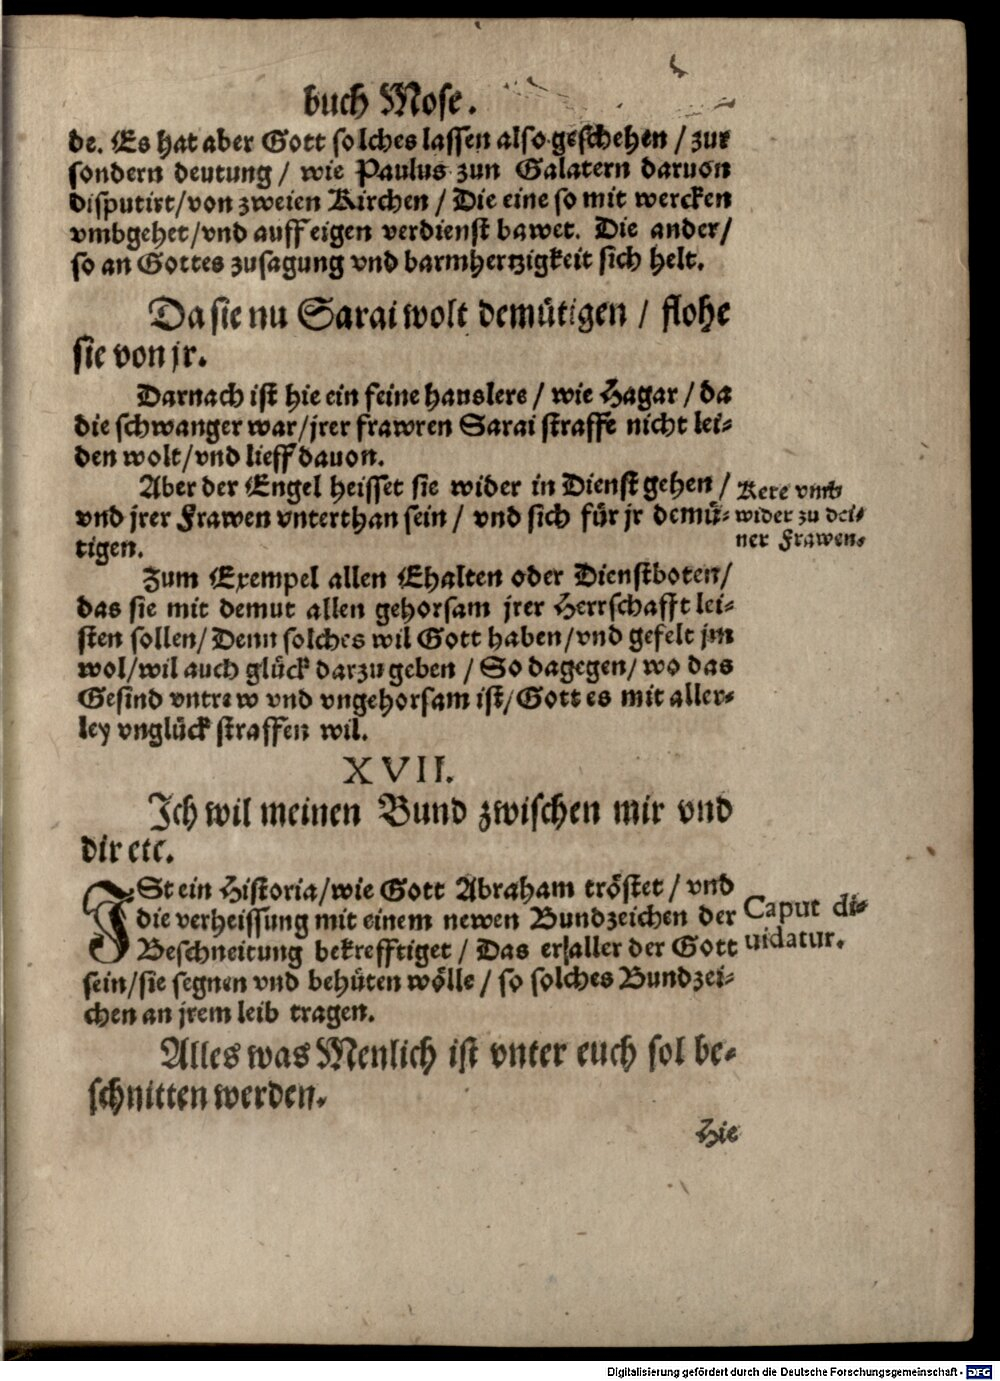 buch Mose.
de. Es hat aber Gott solches lassen also geschehen / zur
sondern deutung / wie Paulus zun Galatern daruon
disputirt / von zweien Kirchen / Die eine so mit wercken
vmbgehet / vnd auff eigen verdienst bawet. Die ander /
so an Gottes zusagung vnd barmhertzigkeit sich helt.
Da sie nu Sarai wolt demütigen / flohe
sie von jr.
Darnach ist hie ein feine hauslere / wie Hagar / da
die schwanger war / jrer frawren Sarai straffe nicht lei-
den wolt / vnd lieff dauon.
Aber der Engel heisset sie wider in Dienst gehen /
vnd jrer Frawen vnterthan sein / vnd sich für jr demü-
tigen.
Kere vmb
wider zu dei-
ner Frawen.
Zum Exempel allen Ehalten oder Dienstboten /
das sie mit demut allen gehorsam jrer Herrschafft lei-
sten sollen / Denn solches wil Gott haben / vnd gefelt jm
wol / wil auch glück darzu geben / So dagegen / wo das
Gesind vntrew vnd vngehorsam ist / Gott es mit aller-
ley vnglück straffen wil.
XVII.
Ich wil meinen Bund zwischen mir vnd
dir etc.
ISt ein Historia / wie Gott Abraham tröstet / vnd
die verheissung mit einem newen Bundzeichen der
Beschneitung bekrefftiget / Das er aller der Gott
sein / sie segnen vnd behüten wölle / so solches Bundzei-
chen an jrem leib tragen.
Caput di-
uidatur.
Alles was Menlich ist vnter euch sol be-
schnitten werden.
Hie
Digitalisierung gefördert durch die Deutsche Forschungsgemeinschaft - DFG